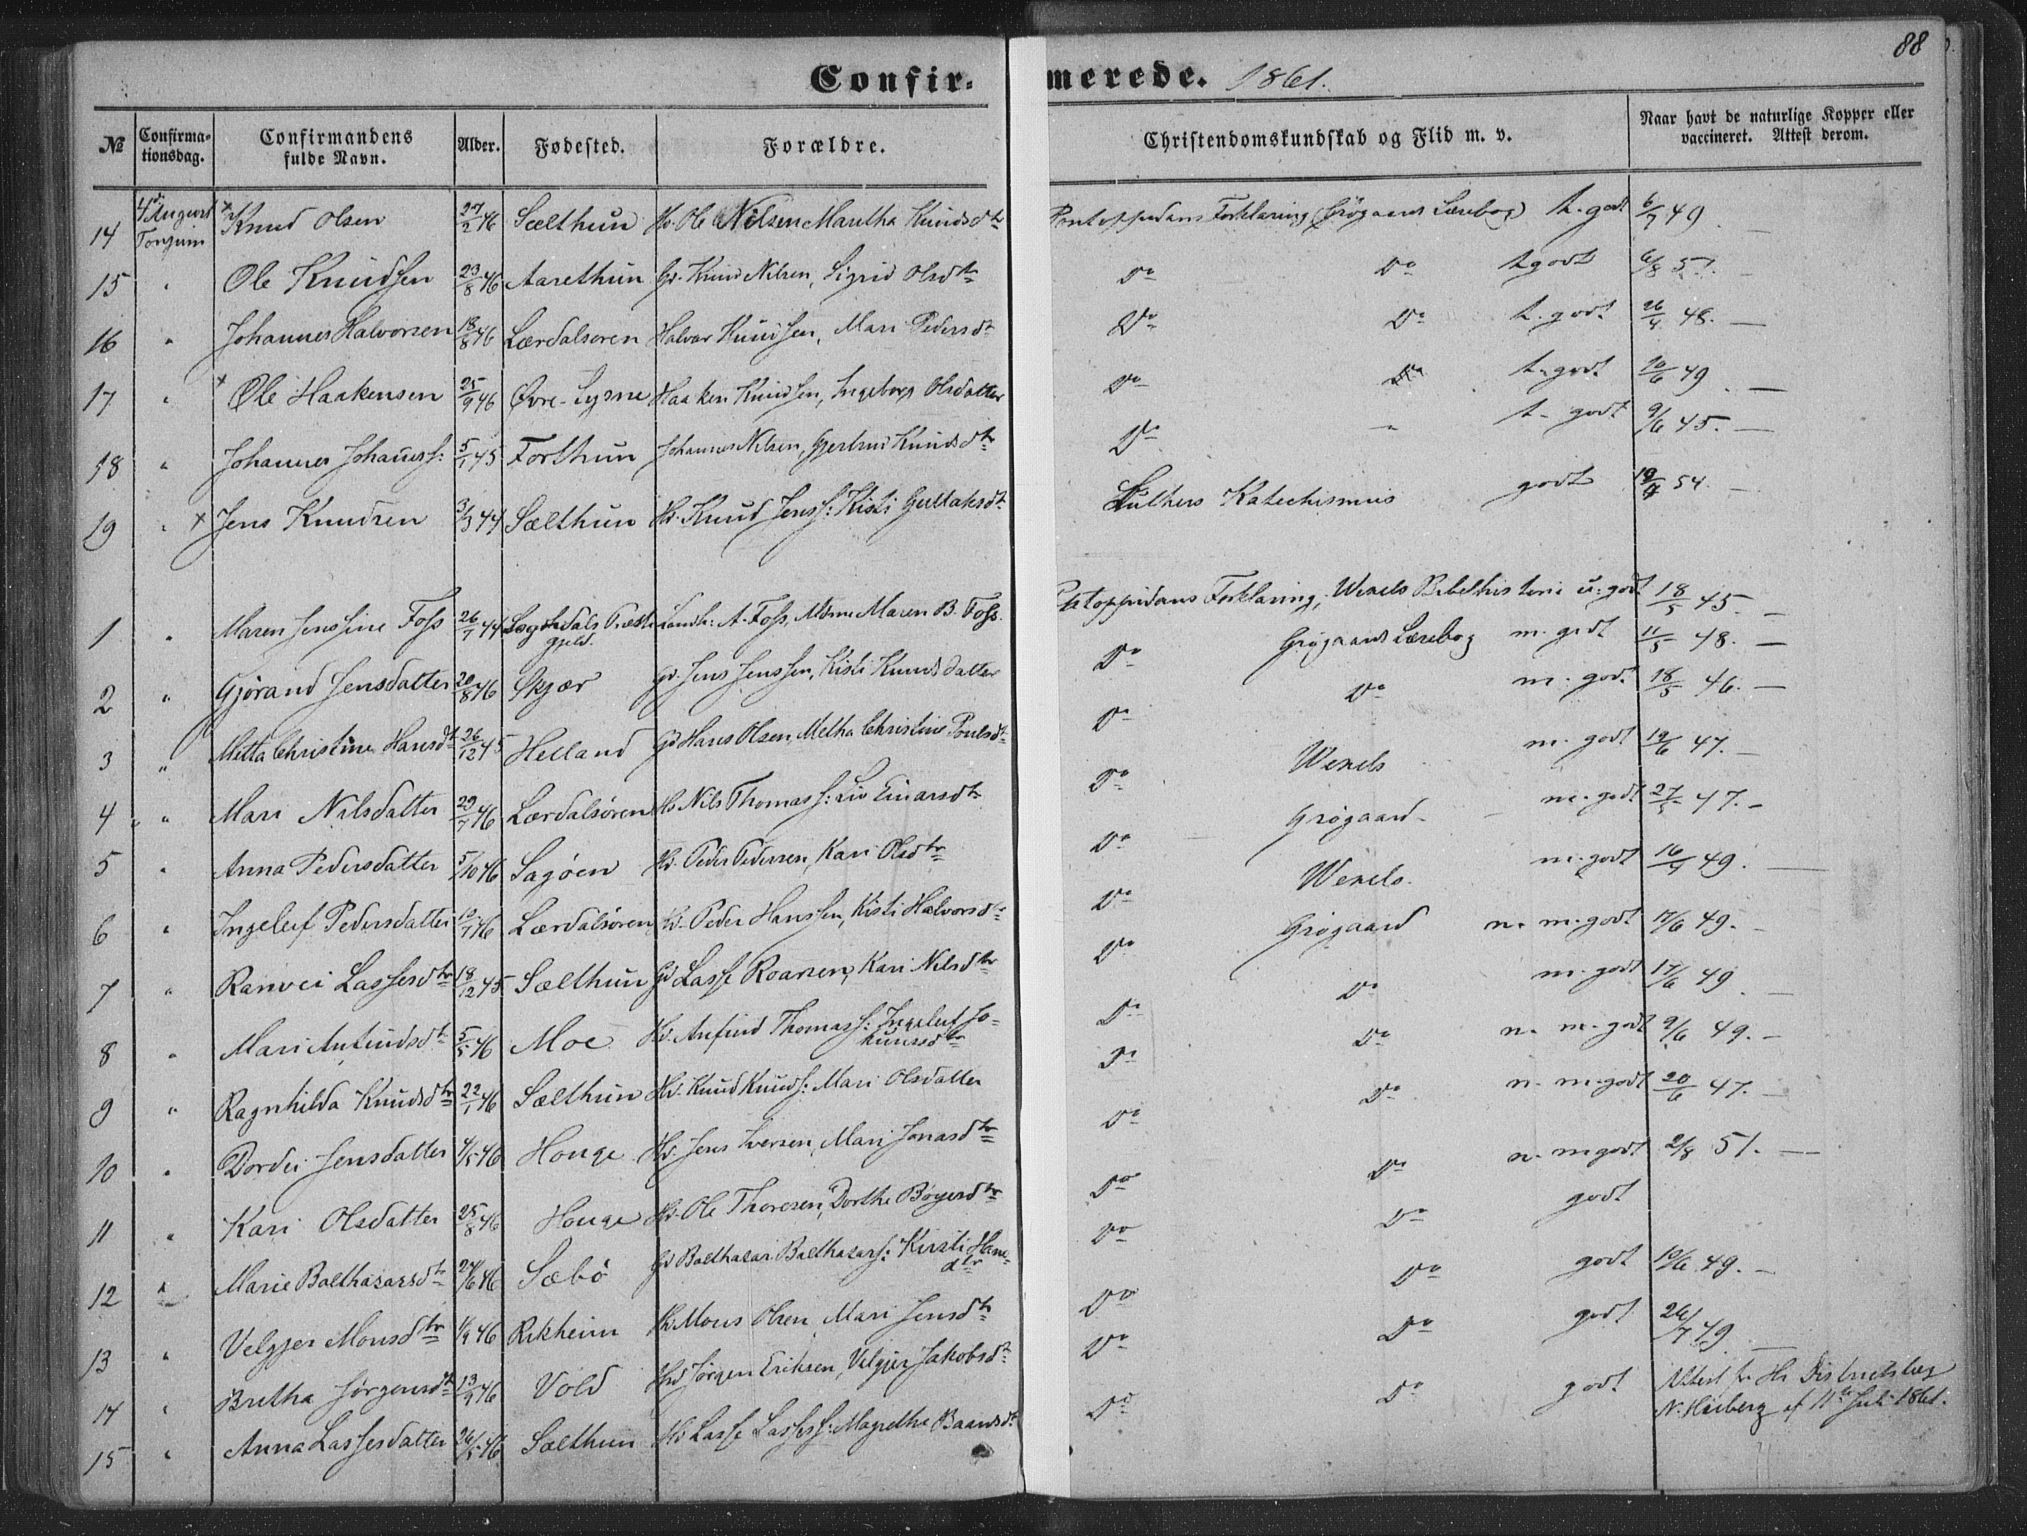 88
Confirmerede. 1861.
№ Confirmationsdag. Confirmandens fulde Navn. Alder. Fødested. Forældre. Christendomskundskab og Flid m. v. Naar havt de naturlige Kopper eller vaccineret. Attest derom.
14 4de August Tonjum Knud Olsen 27/2 46 Sælthun Hd. Ole Nilsen Maretha Knudsdtr Pontoppidans Forklaring Grøgaards Læsebog t. godt 6/7 49
15 " Ole Knudsen 23/8 46 Aarethun Gd. Knud Nilsen, Sigrid Olsdtr Do Do t godt 6/8 57.
16 " Johannes Halvorsen 18/8 46 Lærdalsøren Halvor Knudsen, Mari Pedersdt Do Do t. godt 26/4 48.
17 " Ole Haakensen 25/9 46 Øvre-Lysne Haaken Knudsen, Ingeborg Olsdatter Do t. godt 10/6 49
18 " Johannes Johanss: 5/1 45 Forthun Johannes Nilsen, Gjertrud Knudsdtr Do " t. godt 9/6 45.
19 " Jens Knudsen 3/3 44 Sælthun Hd. Knud Jenss: Kisti Gullaksdt Luthers Katechismus godt 54.
1 " Maren Jensine Foss 26/7 44 Præstegjeld. Landh: A. Foss, Maren B. Foss. Pontoppidans Forklaring, Wexels Bibelhistorie u. godt 18/5 45.
2 " Gjørand Jensdatter 20/8 46 Skjær Gd. Jens Jenssen, Kisti Knudsdatter Do Grøgaards Læsebog m. godt 11/5 48.
3 " Metta Christine Hansdt 26/12 45 Helland Gd Hans Olsen, Metha Christine Poulsdt Do Do m. godt 18/5 46.
4 " Mari Nilsdatter 29/7 46 Lærdalsøren Hd Nils Thomass: Liv Einarsdtr Do Wexels m. godt 19/6 47.
5 " Anna Pedersdatter 5/10 46 Sagøen Hd. Peder Pedersen, Kari Olsdtr Do Grøgaard m. godt 27/5 47.
6 " Ingeleif Pedersdatter Lærdalsøren Hd. Peder Hanssen, Kisti Halvorsdtr Do Wexels. m. godt 49.
7 " Ranvei Lassesdtr 18/12 45 Sælthun Gd Lasse Roarsen, Kari Nilsdtr Do Grøgaard n. m. godt 17/6 49.
8 " Mari Anfindsdt 5/5 46 Moe Hd. Anfind Thomass: Ingeleif Johannesdtr Do Do m. godt 17/6 49.
9 " Ragnhilda Knudsdtr 22/1 46 Sælthun Hd. Knud Knuds: Mari Olsdatter Do Do n. m. godt 9/6 49.
10 " Dordei Jensdatter 4/5 46 Houge Hd. Jens Iversen, Mari Jonasdtr Do Do n. m. godt 20/6 47.
11 " Kari Olsdatter 25/8 46 Houge Hd. Ole Thoresen, Dorthe Bøyesdtr Do Do n. m godt 2/8 51.
12 " Marie Balthasarsdt 24/6 46 Sæbø Gd Balthasar Balthasars: Kirsti Hansdtr Do Do godt
13 " Velgjer Monsdtr 1/9 46 Rikheim Hd. Mons Olsen, Mari Jensdtr Do Do godt 10/6 49.
14 " Bretha Jørgensdt 13/9 46 Vold Hd Jørgen Eriksen, Velgjer Jakobsdt Do Do godt 26/7 49
15 " Anna Lassesdatter 26/5 46 Sælthun Hd Lasse Lassess: Magretha Baardsdt Do Do godt Attest fr Hr Districtslæge N. Heiberg af 11te Juli 1861.